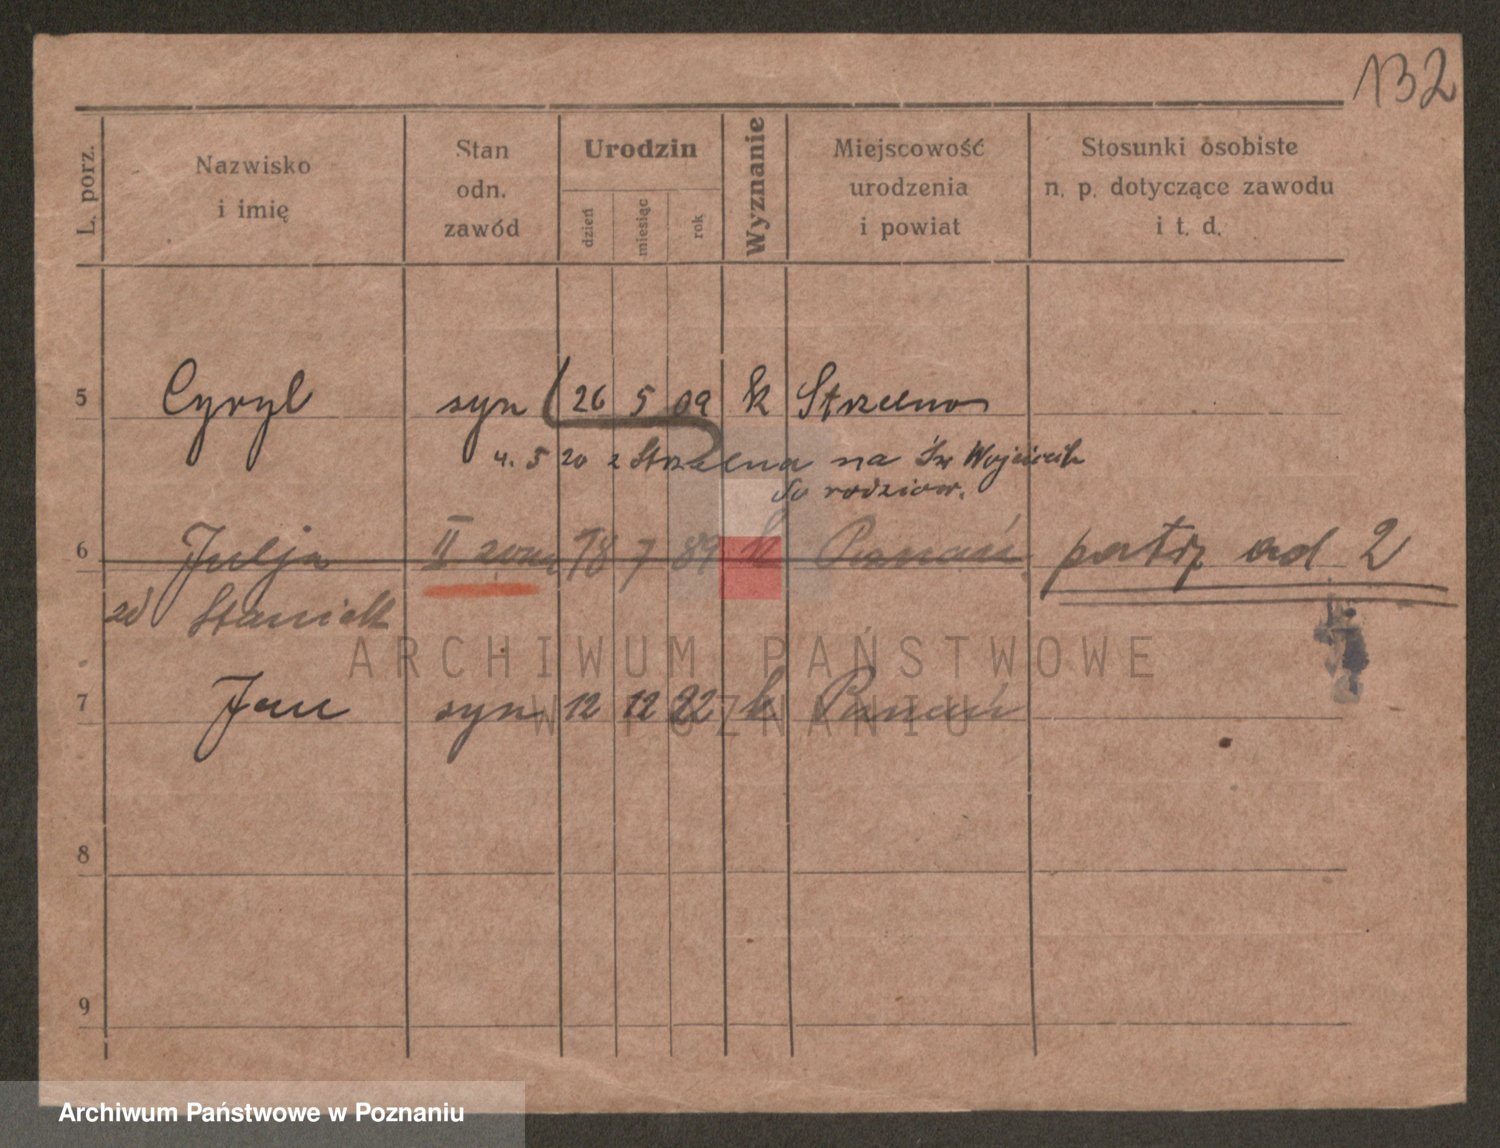 132
L. porz.
Nazwisko
i imię
Stan
odn.
zawód
Urodzin
dzień
miesiąc
rok
Wyznanie
Miejscowość
urodzenia
i powiat
Stosunki osobiste
n. p. dotyczące zawodu
i t. d.
5 Cyryl syn 26 5 09 k Strzelno
4. 5 20 z Strzelna na Św Wojciech
do rodziców.
6 Julja II żona 18 7 89 k Poznań patrz ad 2
zd
7 Jan syn 12 12 22 k Poznań
8
9
ARCHIWUM PAŃSTWOWE
W POZNANIU
Archiwum Państwowe w Poznaniu